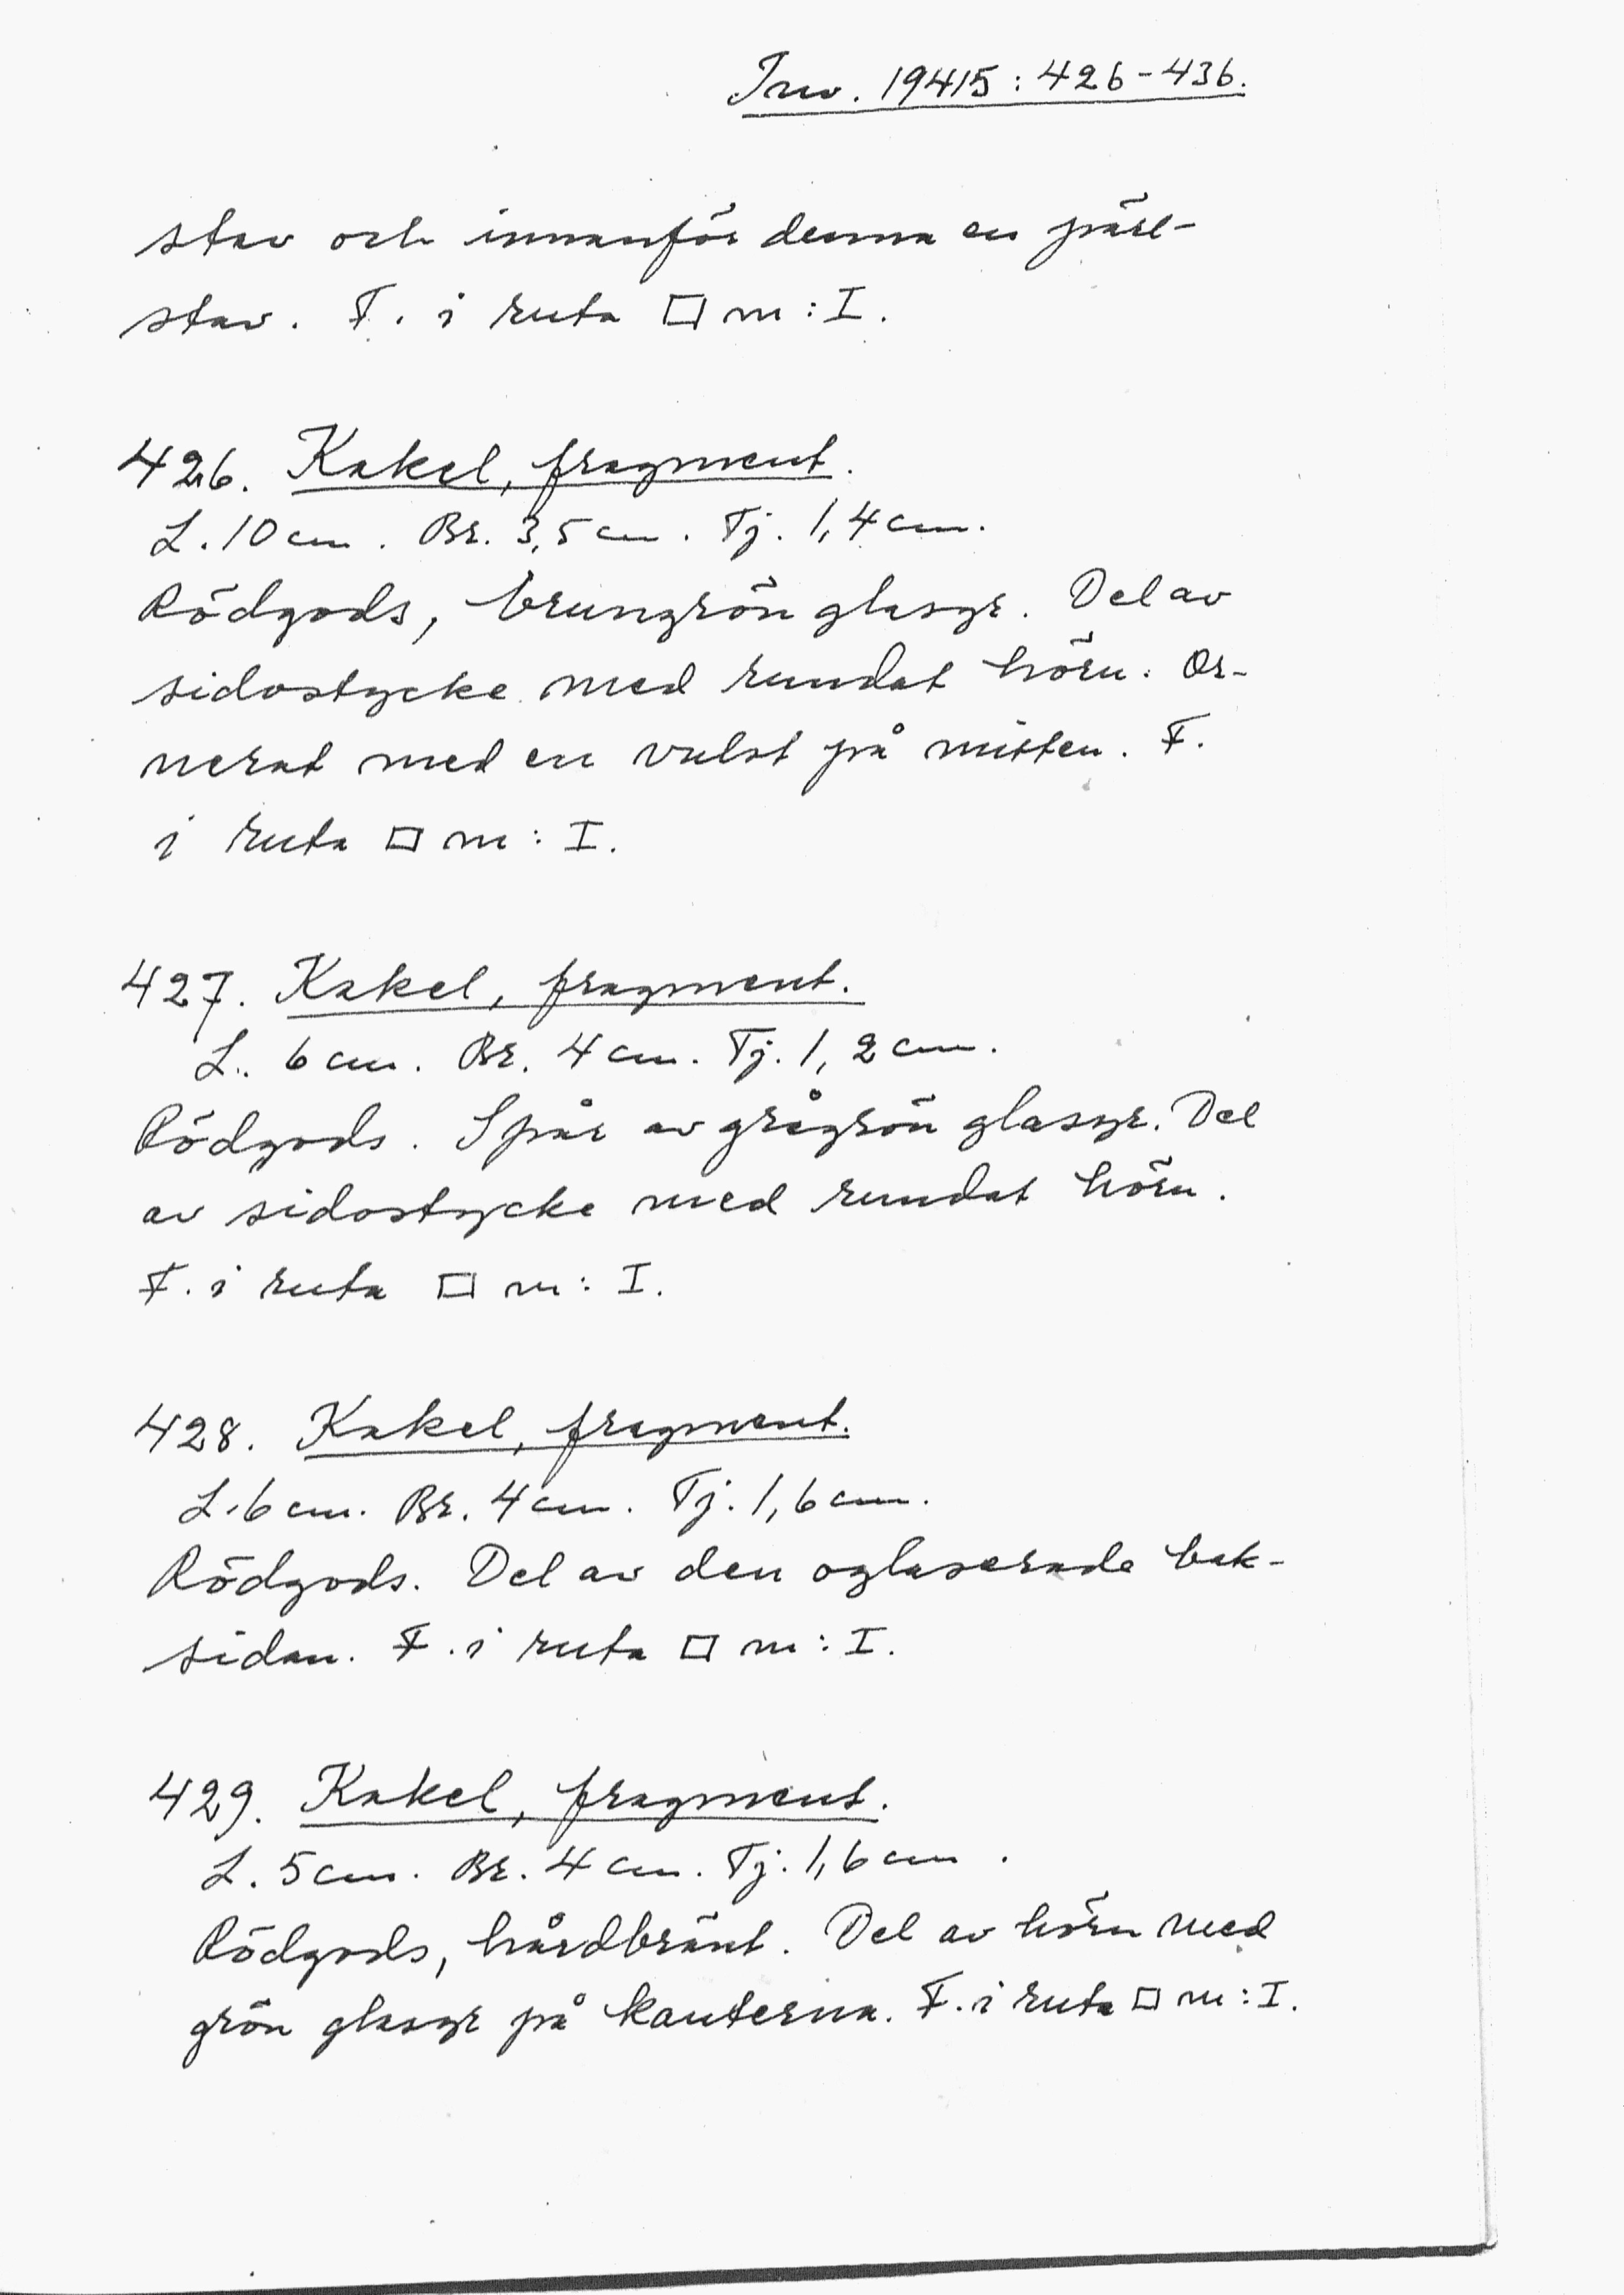 Inv. 19415: 426-436.
stav och innanför denna en pärl-
stav. F. i ruta □ m: I.
426. Kakel, fragment.
L. 10 cm. Br. 3,5 cm. Tj. 1,4 cm.
Rödgods, brungrön glasyr. Del av
sidostycke med rundat hörn. Or-
nerat med en vulst på mitten. F.
i ruta □ m: I.
427. Kakel, fragment.
L. 6 cm. Br. 4 cm. Tj. 1,2 cm.
Rödgods. Spår av grågrön glasyr. Del
av sidostycke med rundat hörn.
F. i ruta □ m: I.
428. Kakel, fragment.
L. 6 cm. Br. 4 cm. Tj. 1,6 cm.
Rödgods. Del av den oglaserade bak-
sidan. F. i ruta □ m: I.
429. Kakel, fragment.
L. 5 cm. Br. 4 cm. Tj. 1,6 cm.
Rödgods, hårdbränt. Del av hörn med
grön glasyr på kanterna. F. i ruta □ m: I.